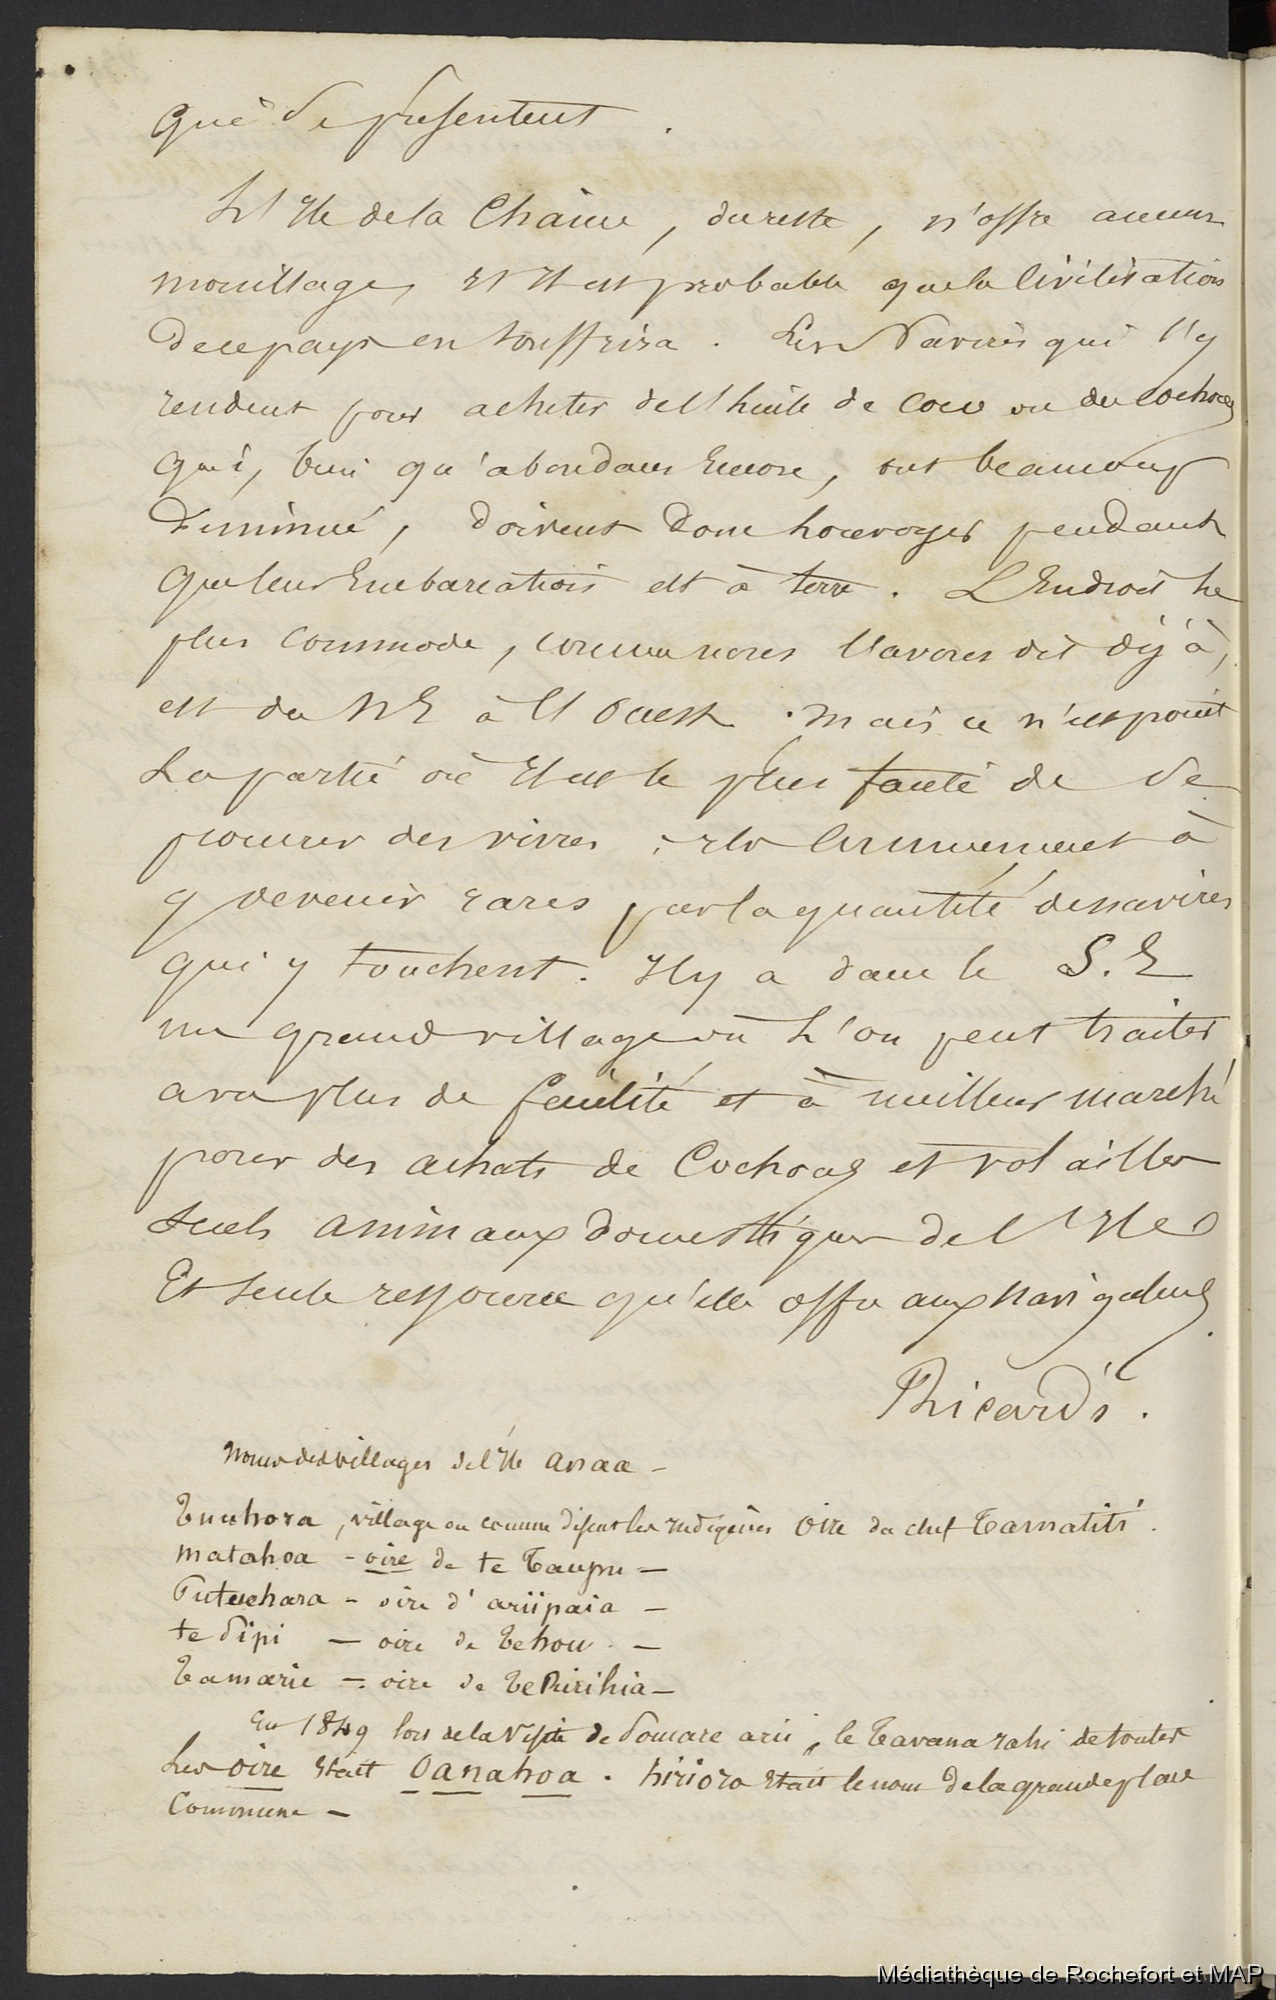 qui se présentent.
L'Ile de la Chaine, du reste, n'offre aucun
mouillage, et il est probable que la Civilisation
de ce pays en souffrira. Les Navires qui s'y
rendent pour acheter de l'huile de coco ou des cochons
qui, bien qu'abondans encore, ont beaucoup
diminué, doivent donc louvoyer pendant
que leur Embarcation est à terre. L'Endroit le
plus commode, comme nous l'avons dit déjà,
est du NE à l'Ouest. Mais ce n'est point
la partie où il est le plus facile de se
procurer des vivres; ils commencent à
y devenir rares par la quantité de navires
qui y touchent. Il y a dans le S.E
un grand village où l'on peut traiter
avec plus de facilité et à meilleur marché
pour des achats de Cochons et volailles
seuls animaux domestiques de l'Ile
Et seule ressource qu'elle offre aux navigateurs.
Ricardi.
Noms des villages de l'Ile Anaa —
Tuuhora, village ou comme disent les indigènes Oire du chef Tamatiti.
Matahoa - oire de te Taupu —
Putuahara - oire d'ariipaia —
te Pipi — oire de Tehou. —
Tamarie — oire de TePuirihia —
En 1849 lors de la Visite de Pomare arii, le Tavana rahi de toutes
Les oire était Oanahoa. hirioro était le nom de la grande place
Commune —
Médiathèque de Rochefort et MAP